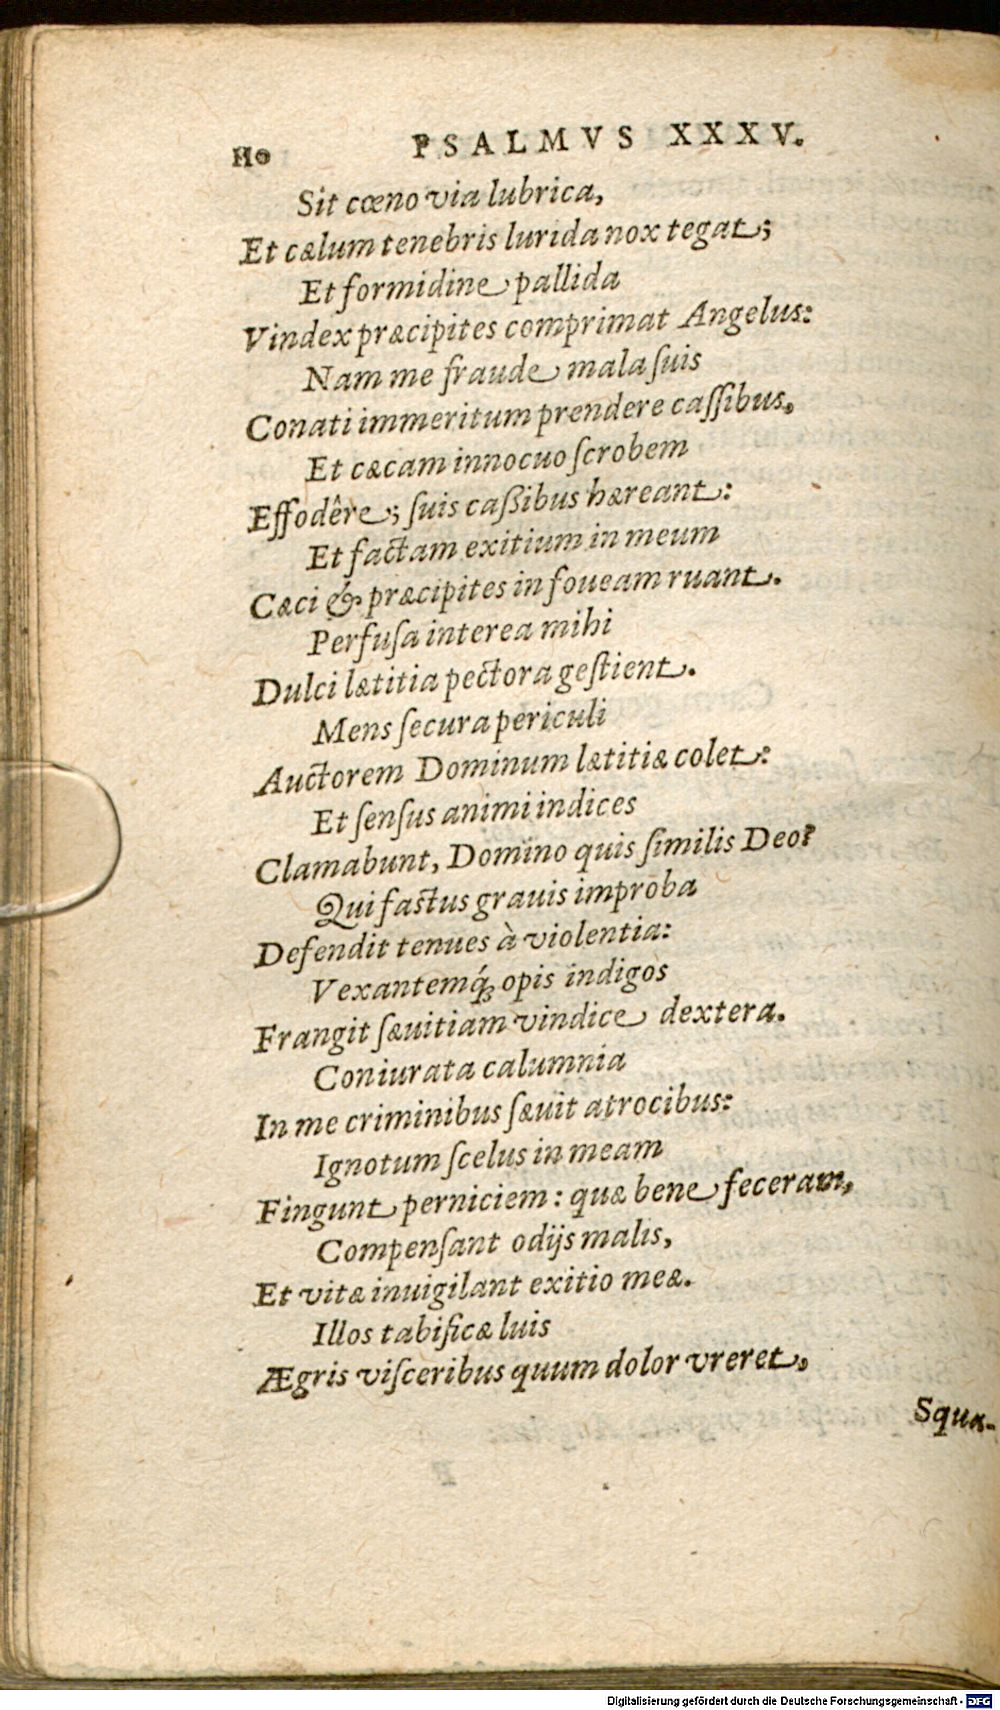 110 PSALMVS XXXV.
Sit cœno via lubrica,
Et cælum tenebris lurida nox tegat;
Et formidine pallida
Vindex præcipites comprimat Angelus:
Nam me fraude mala ſuis
Conati immeritum prendere caſſibus,
Et cæcam innocuo ſcrobem
Effodêre; ſuis caſſibus hæreant:
Et factam exitium in meum
Cæci & præcipites in foueam ruant.
Perfuſa interea mihi
Dulci lætitia pectora geſtient.
Mens ſecura periculi
Auctorem Dominum lætitiæ colet:
Et ſenſus animi indices
Clamabunt, Domino quis ſimilis Deo?
Qui faſtus grauis improba
Defendit tenues à violentia:
Vexantemq́; opis indigos
Frangit ſæuitiam vindice dextera.
Coniurata calumnia
In me criminibus ſæuit atrocibus:
Ignotum ſcelus in meam
Fingunt perniciem: quæ bene feceram,
Compenſant odijs malis,
Et vitæ inuigilant exitio meæ.
Illos tabificæ luis
Ægris viſceribus quum dolor vreret,
Squa-
Digitalisierung gefördert durch die Deutsche Forschungsgemeinschaft - DFG